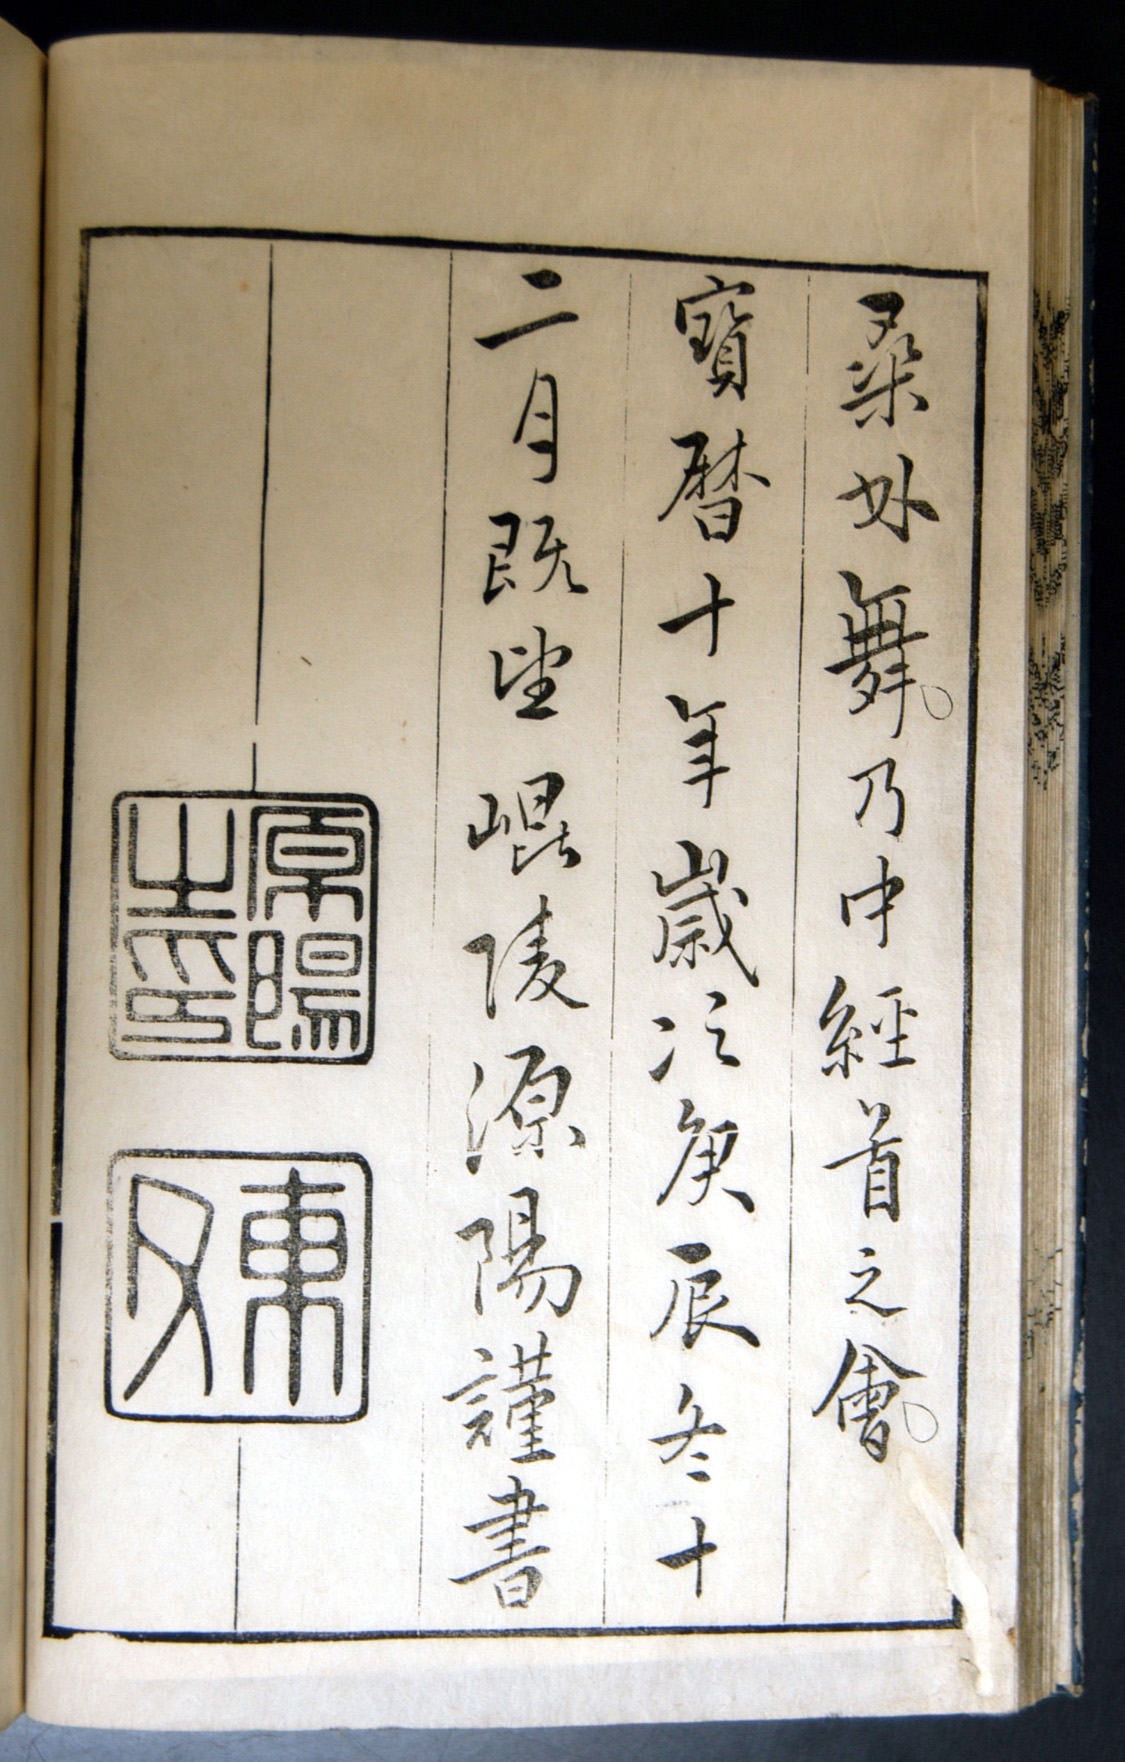 桑林舞。乃中經首之會。
寶暦十年歳次庚辰冬十
二月既望崐陵源陽謹書
原陽之印
東